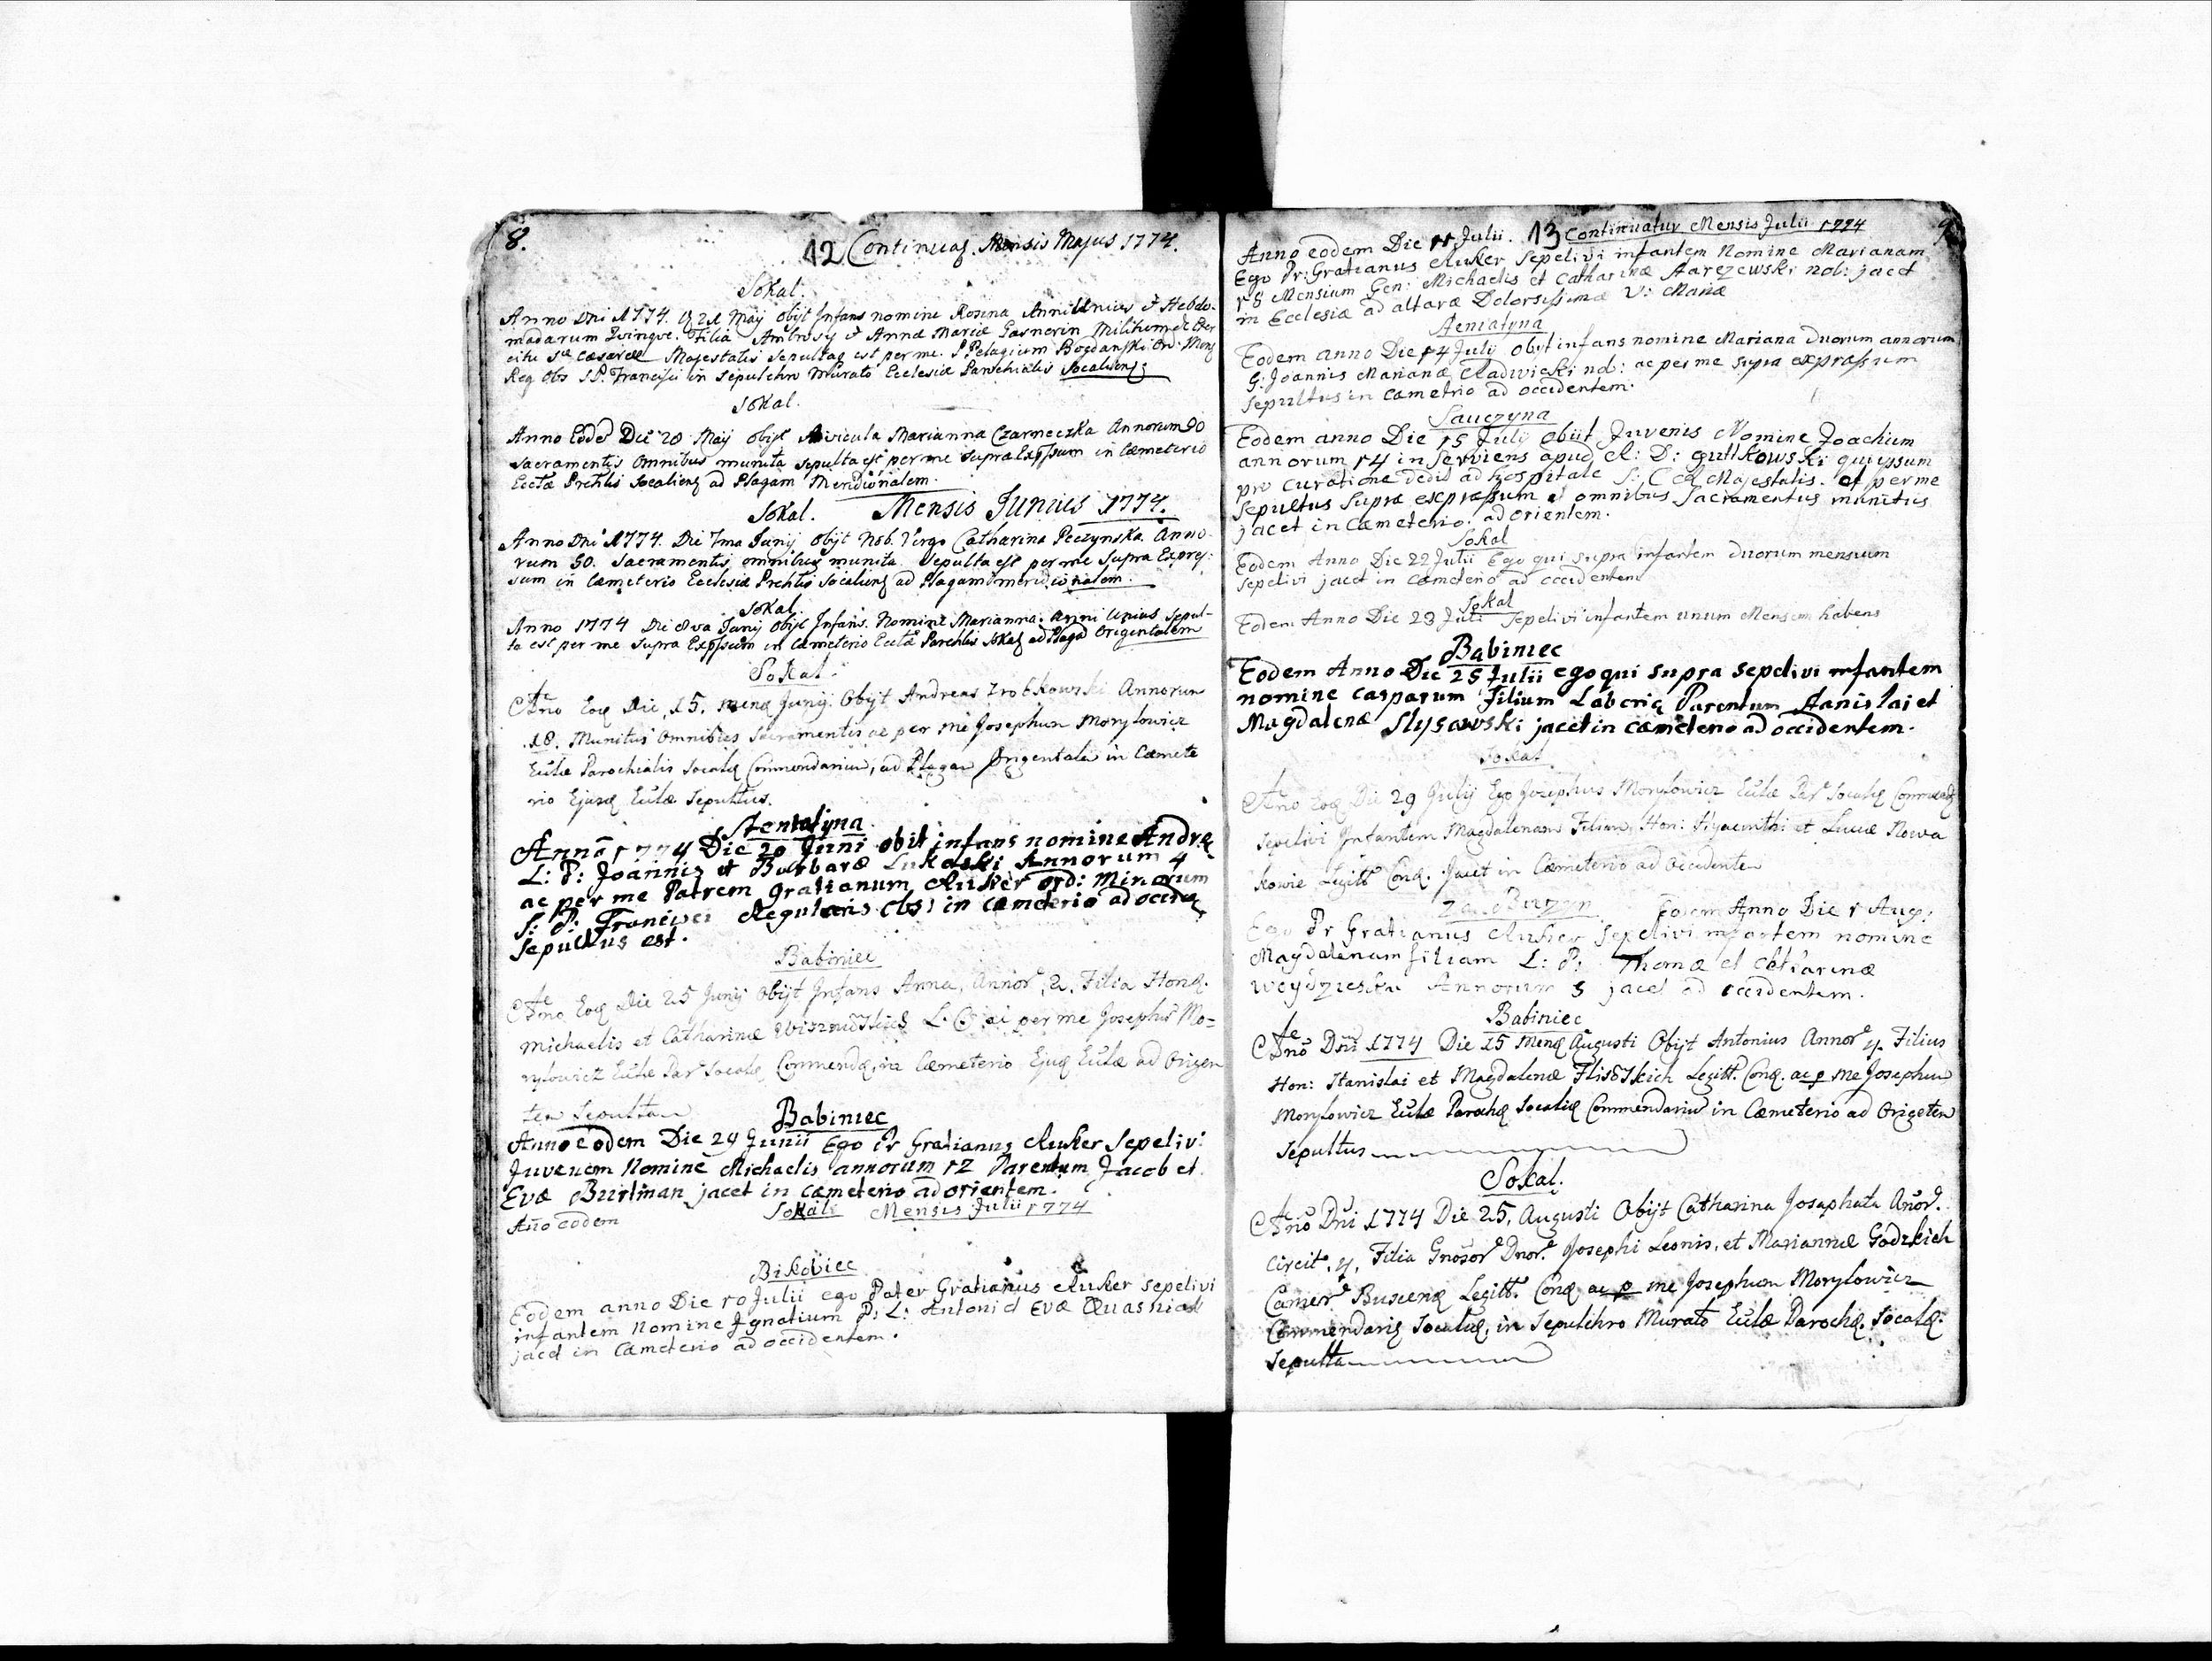 8.
12 Continuaʒ. Mensis Majus 1774.
Sokal.
Anno Dni 1774. Die 21 Maij obijt Infans nomine Rosina Anni Unius & Hebdo-
madarum Quinque. Filia Ambrosij & Anna Maria Gasnerin Militum de Exer
citu Sæ Cæsareæ Majestatis Sepulta est per me. P. Pelagium Bogdanski Ord. Minʒ
Reg. Obs S.P. Francisci in Sepulchro Murato Ecclesiæ Parochialis Socaliensʒ
Sokal.
Anno Eodẽ Die 28 Maij obijt Marianna Czarneczka Annorum 90
Sacramentis omnibus munita sepulta est per me supra Expssum in Cæmeterio
Ecctæ Prchlis Socaliensʒ ad Plagam Meridionalem.
Sokal. Mensis Junius 1774.
Anno Dni 1774. Die 7ma Junij obijt Nob. Virgo Catharina Peczynska Anno-
rum 50. Sacramentis omnibus munita Sepulta est per me Supra Expres:
sum in Cæmeterio Ecclesiæ Prchlis Socaliensʒ ad Plagam meridionalem.
Sokal.
Anno 1774 Die 8va Junij obijt Infans. Nomine Marianna. Anni Unius Sepul-
ta est per me Supra Expssum in Cæmeterio Ecctæ Parchlis Sokalʒ ad Plagã Origentalem
Sokal.
Año Eoq̃ Die, 15. menq̃ Junij. Obijt Andreas Annorum
.18. Munitus Omnibus Sacramentis ac per me Josephum Morylowicz
Eulæ Parochialis Socalq̃ Commendarium, ad Plagam Origentalem in Cæmete
rio Ejusq̃ Eulæ Sepultus.
Steniatyna
Anno 1774 Die 20 Juni obit infans nomine Andreʒ
L: P: Joannis et Barbaræ Lukaski Annorum 4
ac per me Patrem Gratianum Auker Ord: Minorum
S: P: Francisci Regularis Obs: in cæmeterio ad occidʒ
Sepultus est.
Babiniec
Año Eoq̃ Die 25 Junij Obijt Infans Anna, Annor, 2. Filia Honq̃.
Michaelis et Catharinæ L. C. ac per me Josephũ Mo=
rylowicz Eulæ Par Socalq̃ Commendq̃, in Cæmeterio Ejusq̃ Eulæ ad Origen
tem Sepulta
Babiniec
Anno eodem Die 29 Junii Ego Pr Gratianus Auker Sepelivi
Juvenem Nomine Michaelis annorum 12 Parentum Jacob et
Evæ Burlman jacet in cæmeterio ad orientem.
Sokal Mensis Julii 1774
Año eodem
Bikoviec
Eodem anno Die 10 Julii ego Pater Gratianus Auker sepelivi
infantem Nomine Ignatium P: L: Antoni et Evæ Quasnias
jacet in Cæmeterio ad occidentem.
13 Continuatur Mensis Julii 1774
9.
Anno eodem Die 11 Julii.
Ego Pr: Gratianus Auker Sepelivi infantem Nomine Marianam
15 Mensium Gen: Michaelis et Catharinæ nob: jacet
in Ecclesia ad altaræ Dolorsissimæ V: Mariæ
Steniatyna
Eodem anno Die 14 Julij obijt infans nomine Mariana duorum annorum
G. Joannis Marianæ Radwicki nob: ac per me supra expræssum
Sepultus in cæmetrio ad occidentem.
Sauczyna
Eodem anno Die 15 Julij obiit Juvenis Nomine Joachium
annorum 14 in serviens apud R: D: Gutkowski qui ipsum
pro curatione dedit ad Hospitale S: C R Majestatis. et per me
Sepultus Supra expræssum et omnibus Sacramentus munitus
jacet in Cæmeterio. ad orientem.
Sokal
Eodem Anno Die 22 Julii Ego qui supra infantem duorum mensium
sepelivi jacet in cæmeterio ad occidentem
Sokal
Eodem Anno Die 23 Juli Sepelivi infantem unum Mensem habens
Babiniec
Eodem Anno Die 25 Julii ego qui supra sepelivi infantem
nomine Casparum Filium Laboriʒ Parentum Stanislai et
Magdalenæ Slysowski jacet in cæmeterio ad occidentem.
Sokal
Año Eoq̃ Die 29 Julij Ego Josephus Morylowicz Eulæ Par Socalq̃ Commendʒ
Sepelivi Infantem Magdalenam Filiam, Hon: Hyacinthi et Luciæ Nowa
kowie Legitt Conq̃. Jacet in Cæmeterio ad Occidentem
Eodem Anno Die 1 Aug:
Ego Pr Gratianus Auker Sepelivi infantem nomine
Magdalenam filiam L: P: Thomæ et Catharinæ
Annorum 3 jacet ad occidentem.
Babiniec
Año Dñi 1774 Die 15 Menq̃ Augusti Obijt Antonius Annor 4. Filius
Hon: Stanislai et Magdalenæ Legitt. Conq̃. ac p me Josephum
Morylowicz Eulæ Parochq̃ Socaliq̃ Commendariũ in Cæmeterio ad Origetem
Sepultus
Sokal.
Año Dñi 1774 Die 25, Augusti Obijt Catharina Josaphata Añor.
Circit. 4, Filia Gnosor Dnor. Josephi Leonis, et Mariannæ Godzkich
Camer Buscenq̃ Legitt. Conq̃ ac p me Josephum Morylowicz
Commendariʒ Socalq̃, in Sepulchro Murato Eulæ Parochq̃. Socalq̃.
Sepulta